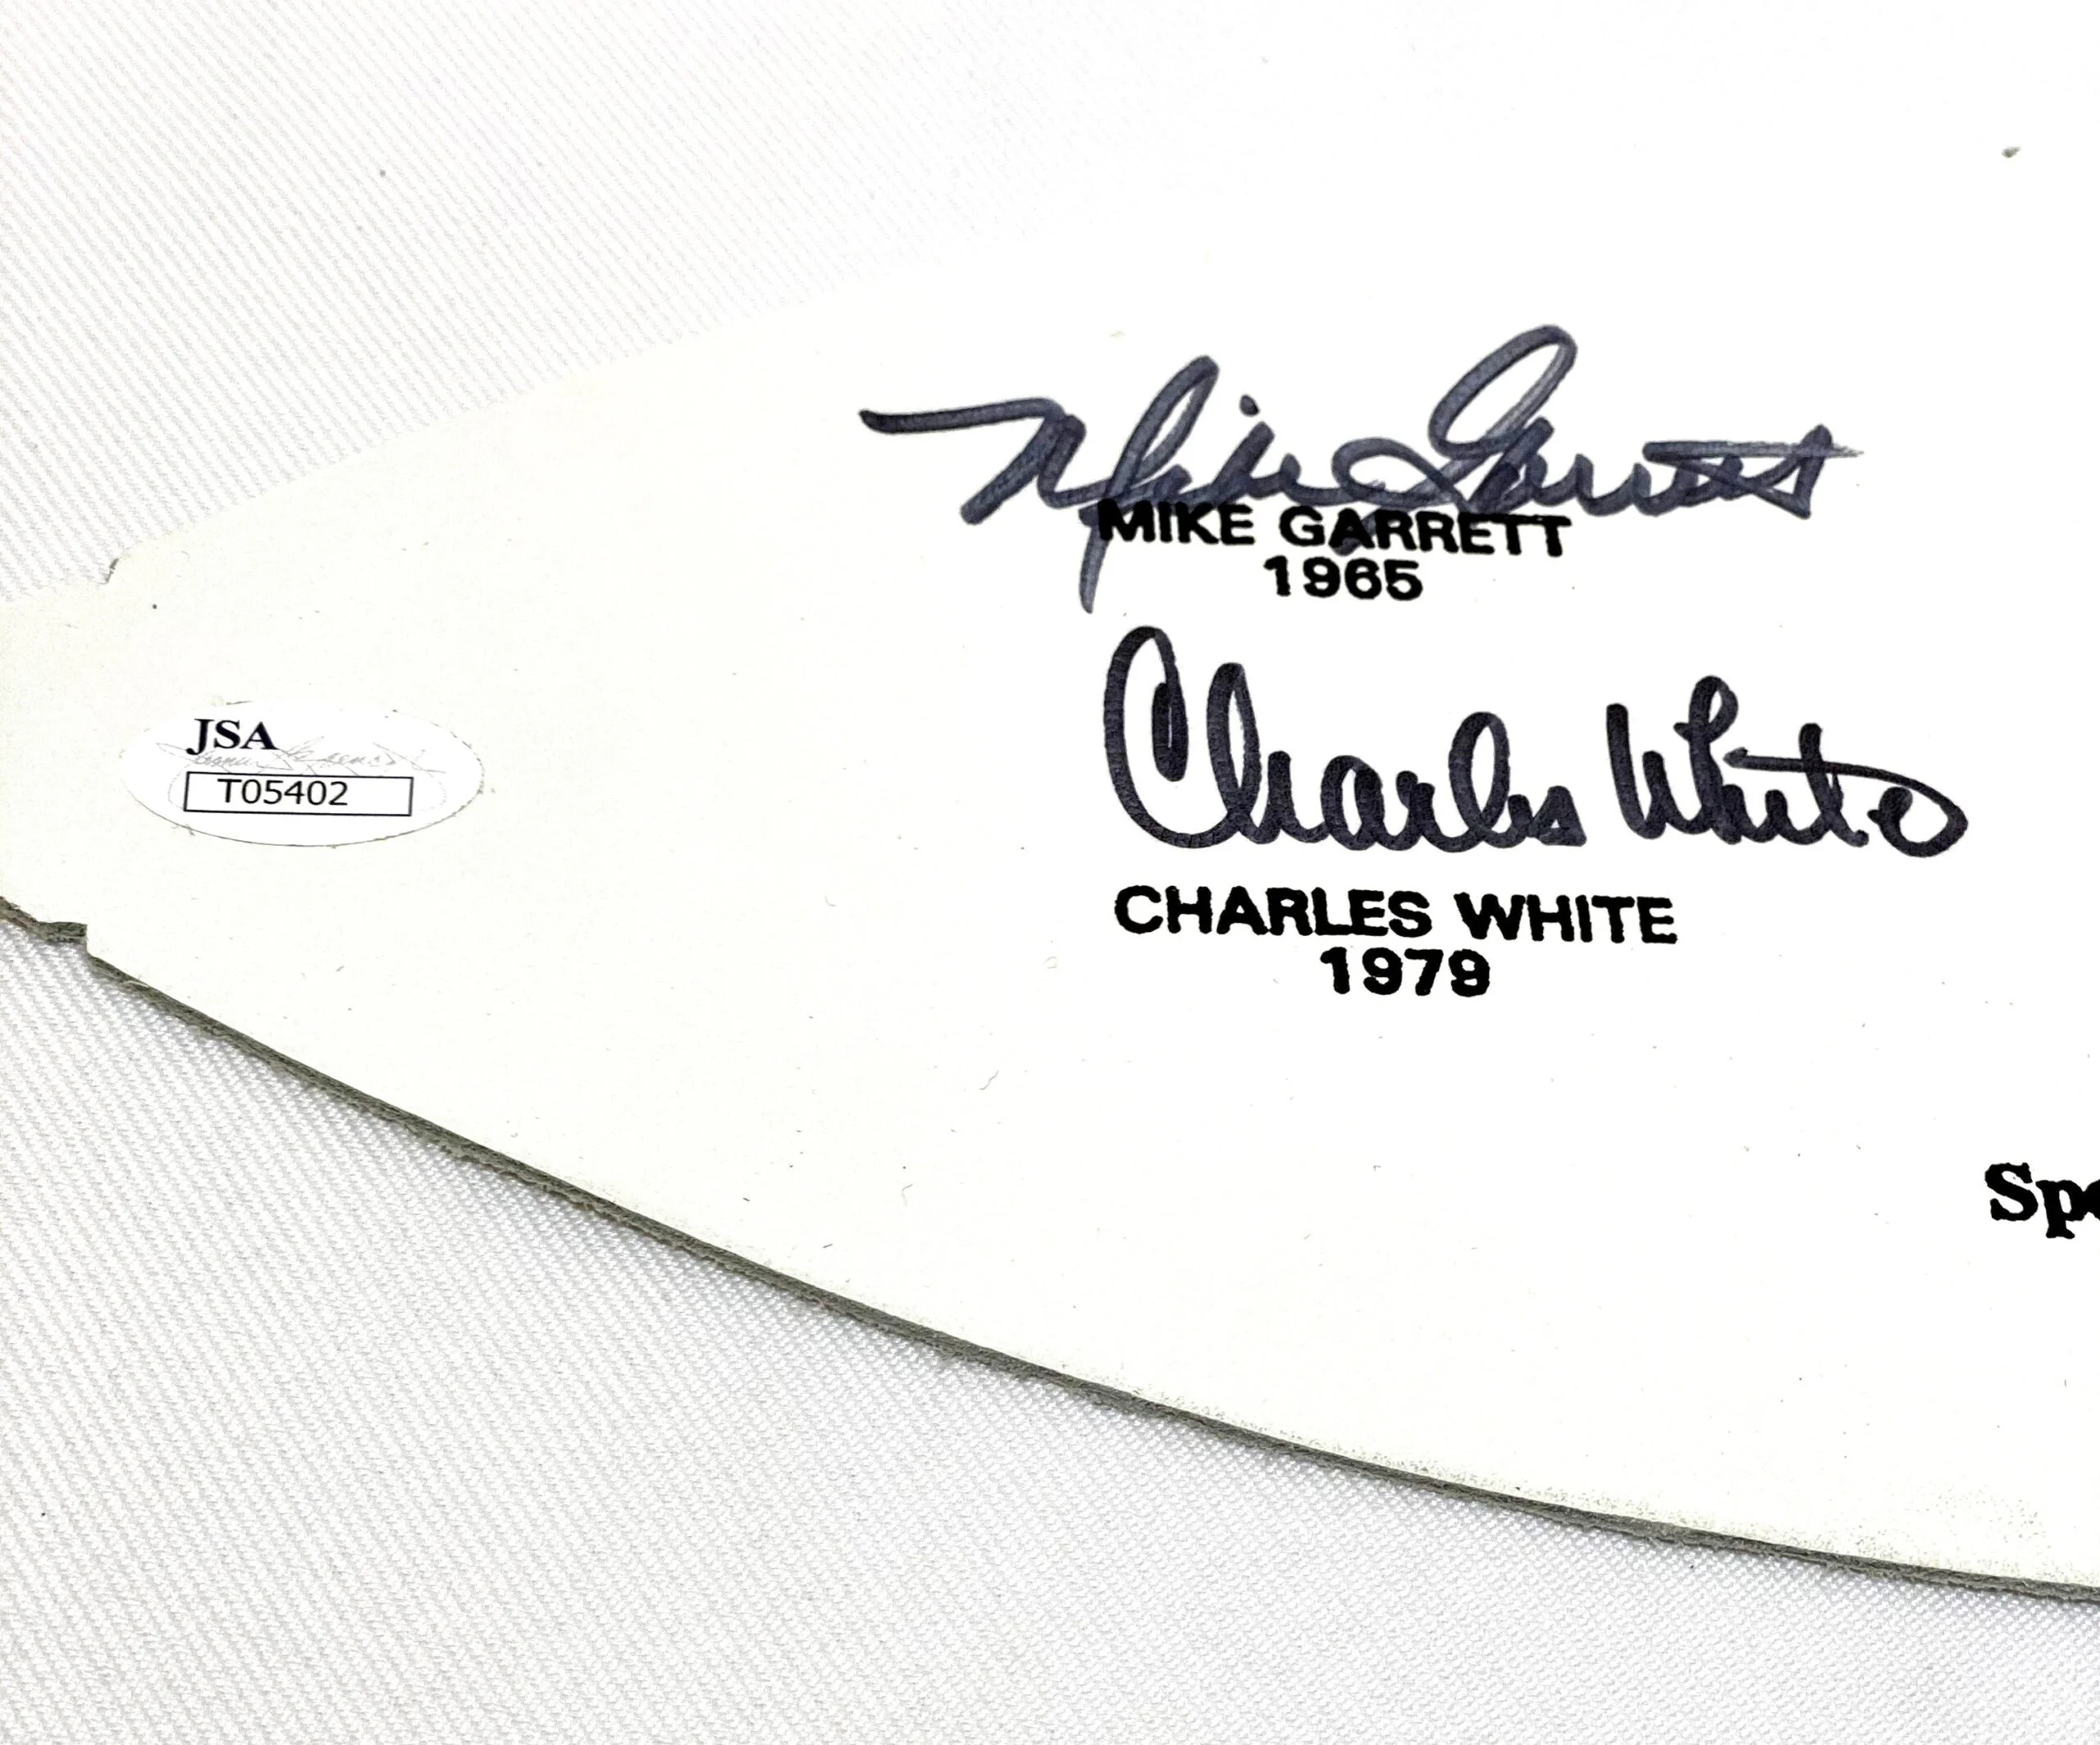 Mike Garrett
MIKE GARRETT
1965
Charles White
CHARLES WHITE
1979
JSA
T05402